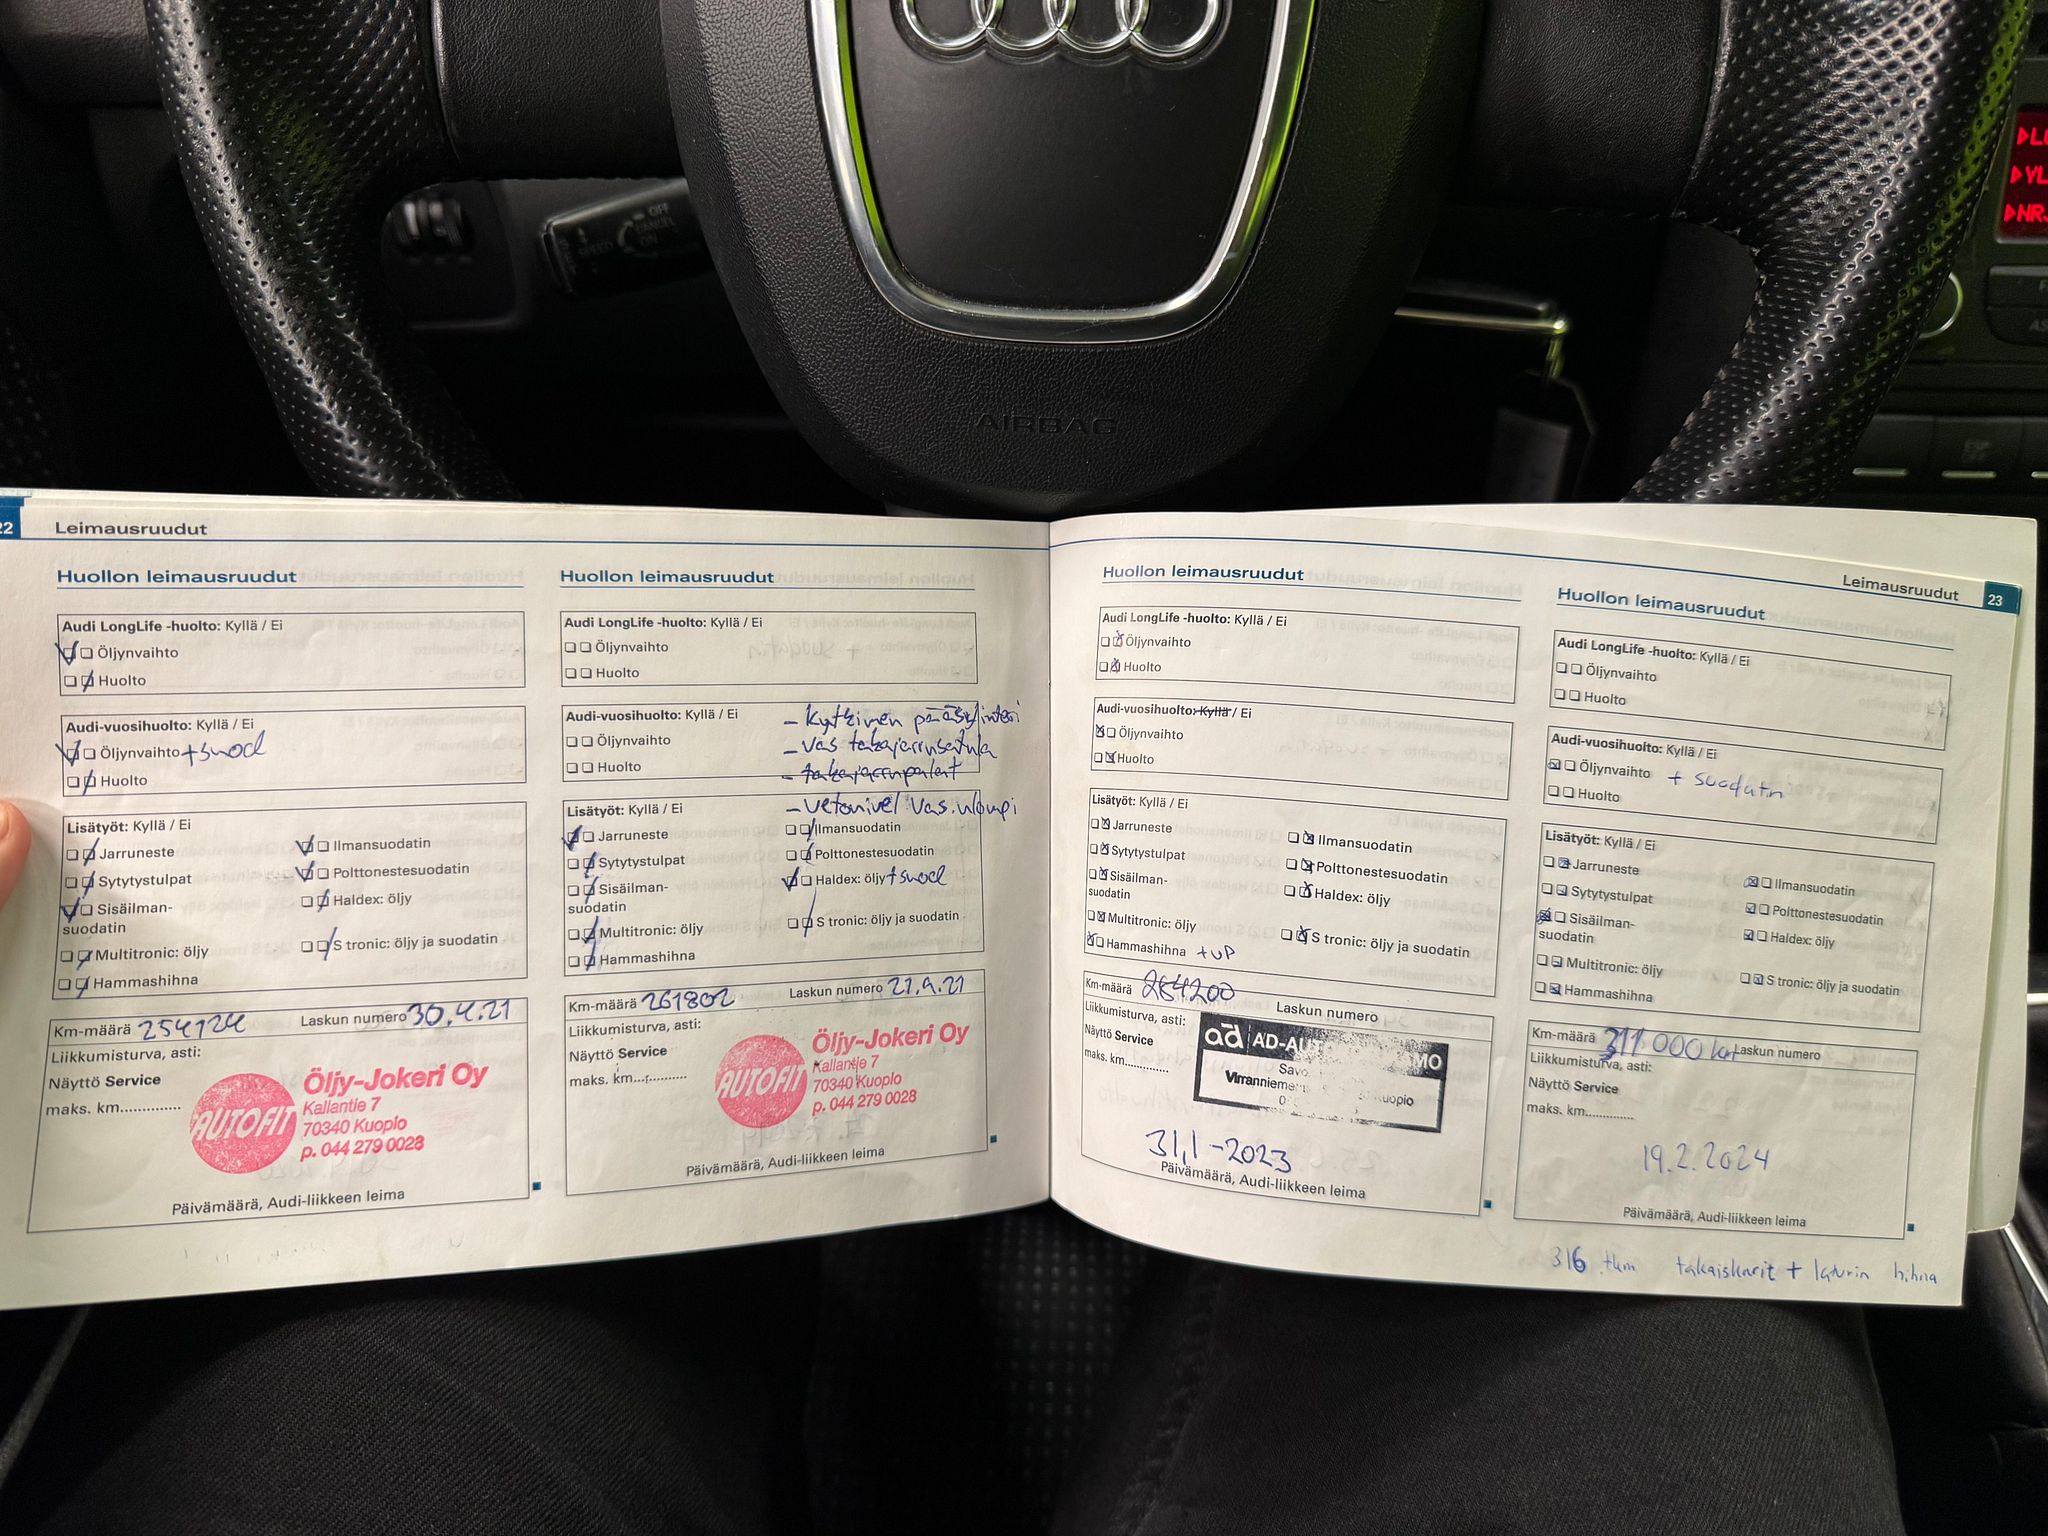 OFF
CANCEL
ON
SPEED
AIRBAG
NRJ
22
Leimausruudut
Huollon leimausruudut
Audi LongLife -huolto: Kyllä / Ei
Öljynvaihto
Huolto
Audi-vuosihuolto: Kyllä / Ei
Öljynvaihto +suod
Huolto
Lisätyöt: Kyllä / Ei
Jarruneste
Ilmansuodatin
Sytytystulpat
Polttonestesuodatin
Sisäilman-
suodatin
Haldex: öljy
Multitronic: öljy
S tronic: öljy ja suodatin
Hammashihna
Km-määrä 254124
Laskun numero 30.4.21
Liikkumisturva, asti:
Näyttö Service
maks. km..............
AUTOFIT
Öljy-Jokeri Oy
Kallantie 7
70340 Kuopio
p. 044 279 0028
Päivämäärä, Audi-liikkeen leima
Huollon leimausruudut
Audi LongLife -huolto: Kyllä / Ei
Öljynvaihto
Huolto
Audi-vuosihuolto: Kyllä / Ei
Öljynvaihto
Huolto
- kytkimen pääsylinteri
- vas takajarrusatula
- takajarrupalat
- vetonivel vas.ulompi
Lisätyöt: Kyllä / Ei
Jarruneste
Ilmansuodatin
Sytytystulpat
Polttonestesuodatin
Sisäilman-
suodatin
Haldex: öljy +suod
Multitronic: öljy
S tronic: öljy ja suodatin
Hammashihna
Km-määrä 261802
Laskun numero 21.9.21
Liikkumisturva, asti:
Näyttö Service
maks. km............
AUTOFIT
Öljy-Jokeri Oy
Kallantie 7
70340 Kuopio
p. 044 279 0028
Päivämäärä, Audi-liikkeen leima
Huollon leimausruudut
Audi LongLife -huolto: Kyllä / Ei
Öljynvaihto
Huolto
Audi-vuosihuolto: Kyllä / Ei
Öljynvaihto
Huolto
Lisätyöt: Kyllä / Ei
Jarruneste
Ilmansuodatin
Sytytystulpat
Polttonestesuodatin
Sisäilman-
suodatin
Haldex: öljy
Multitronic: öljy
S tronic: öljy ja suodatin
Hammashihna +VP
Km-määrä 284200
Laskun numero
Liikkumisturva, asti:
Näyttö Service
maks. km............
ad AD-AU
Kuopio
31,1-2023
Päivämäärä, Audi-liikkeen leima
Leimausruudut
23
Huollon leimausruudut
Audi LongLife -huolto: Kyllä / Ei
Öljynvaihto
Huolto
Audi-vuosihuolto: Kyllä / Ei
Öljynvaihto + suodatin
Huolto
Lisätyöt: Kyllä / Ei
Jarruneste
Ilmansuodatin
Sytytystulpat
Polttonestesuodatin
Sisäilman-
suodatin
Haldex: öljy
Multitronic: öljy
S tronic: öljy ja suodatin
Hammashihna
Km-määrä 311 000 km
Laskun numero
Liikkumisturva, asti:
Näyttö Service
maks. km............
19.2.2024
Päivämäärä, Audi-liikkeen leima
316 tkm takaiskarit + laturin hihna